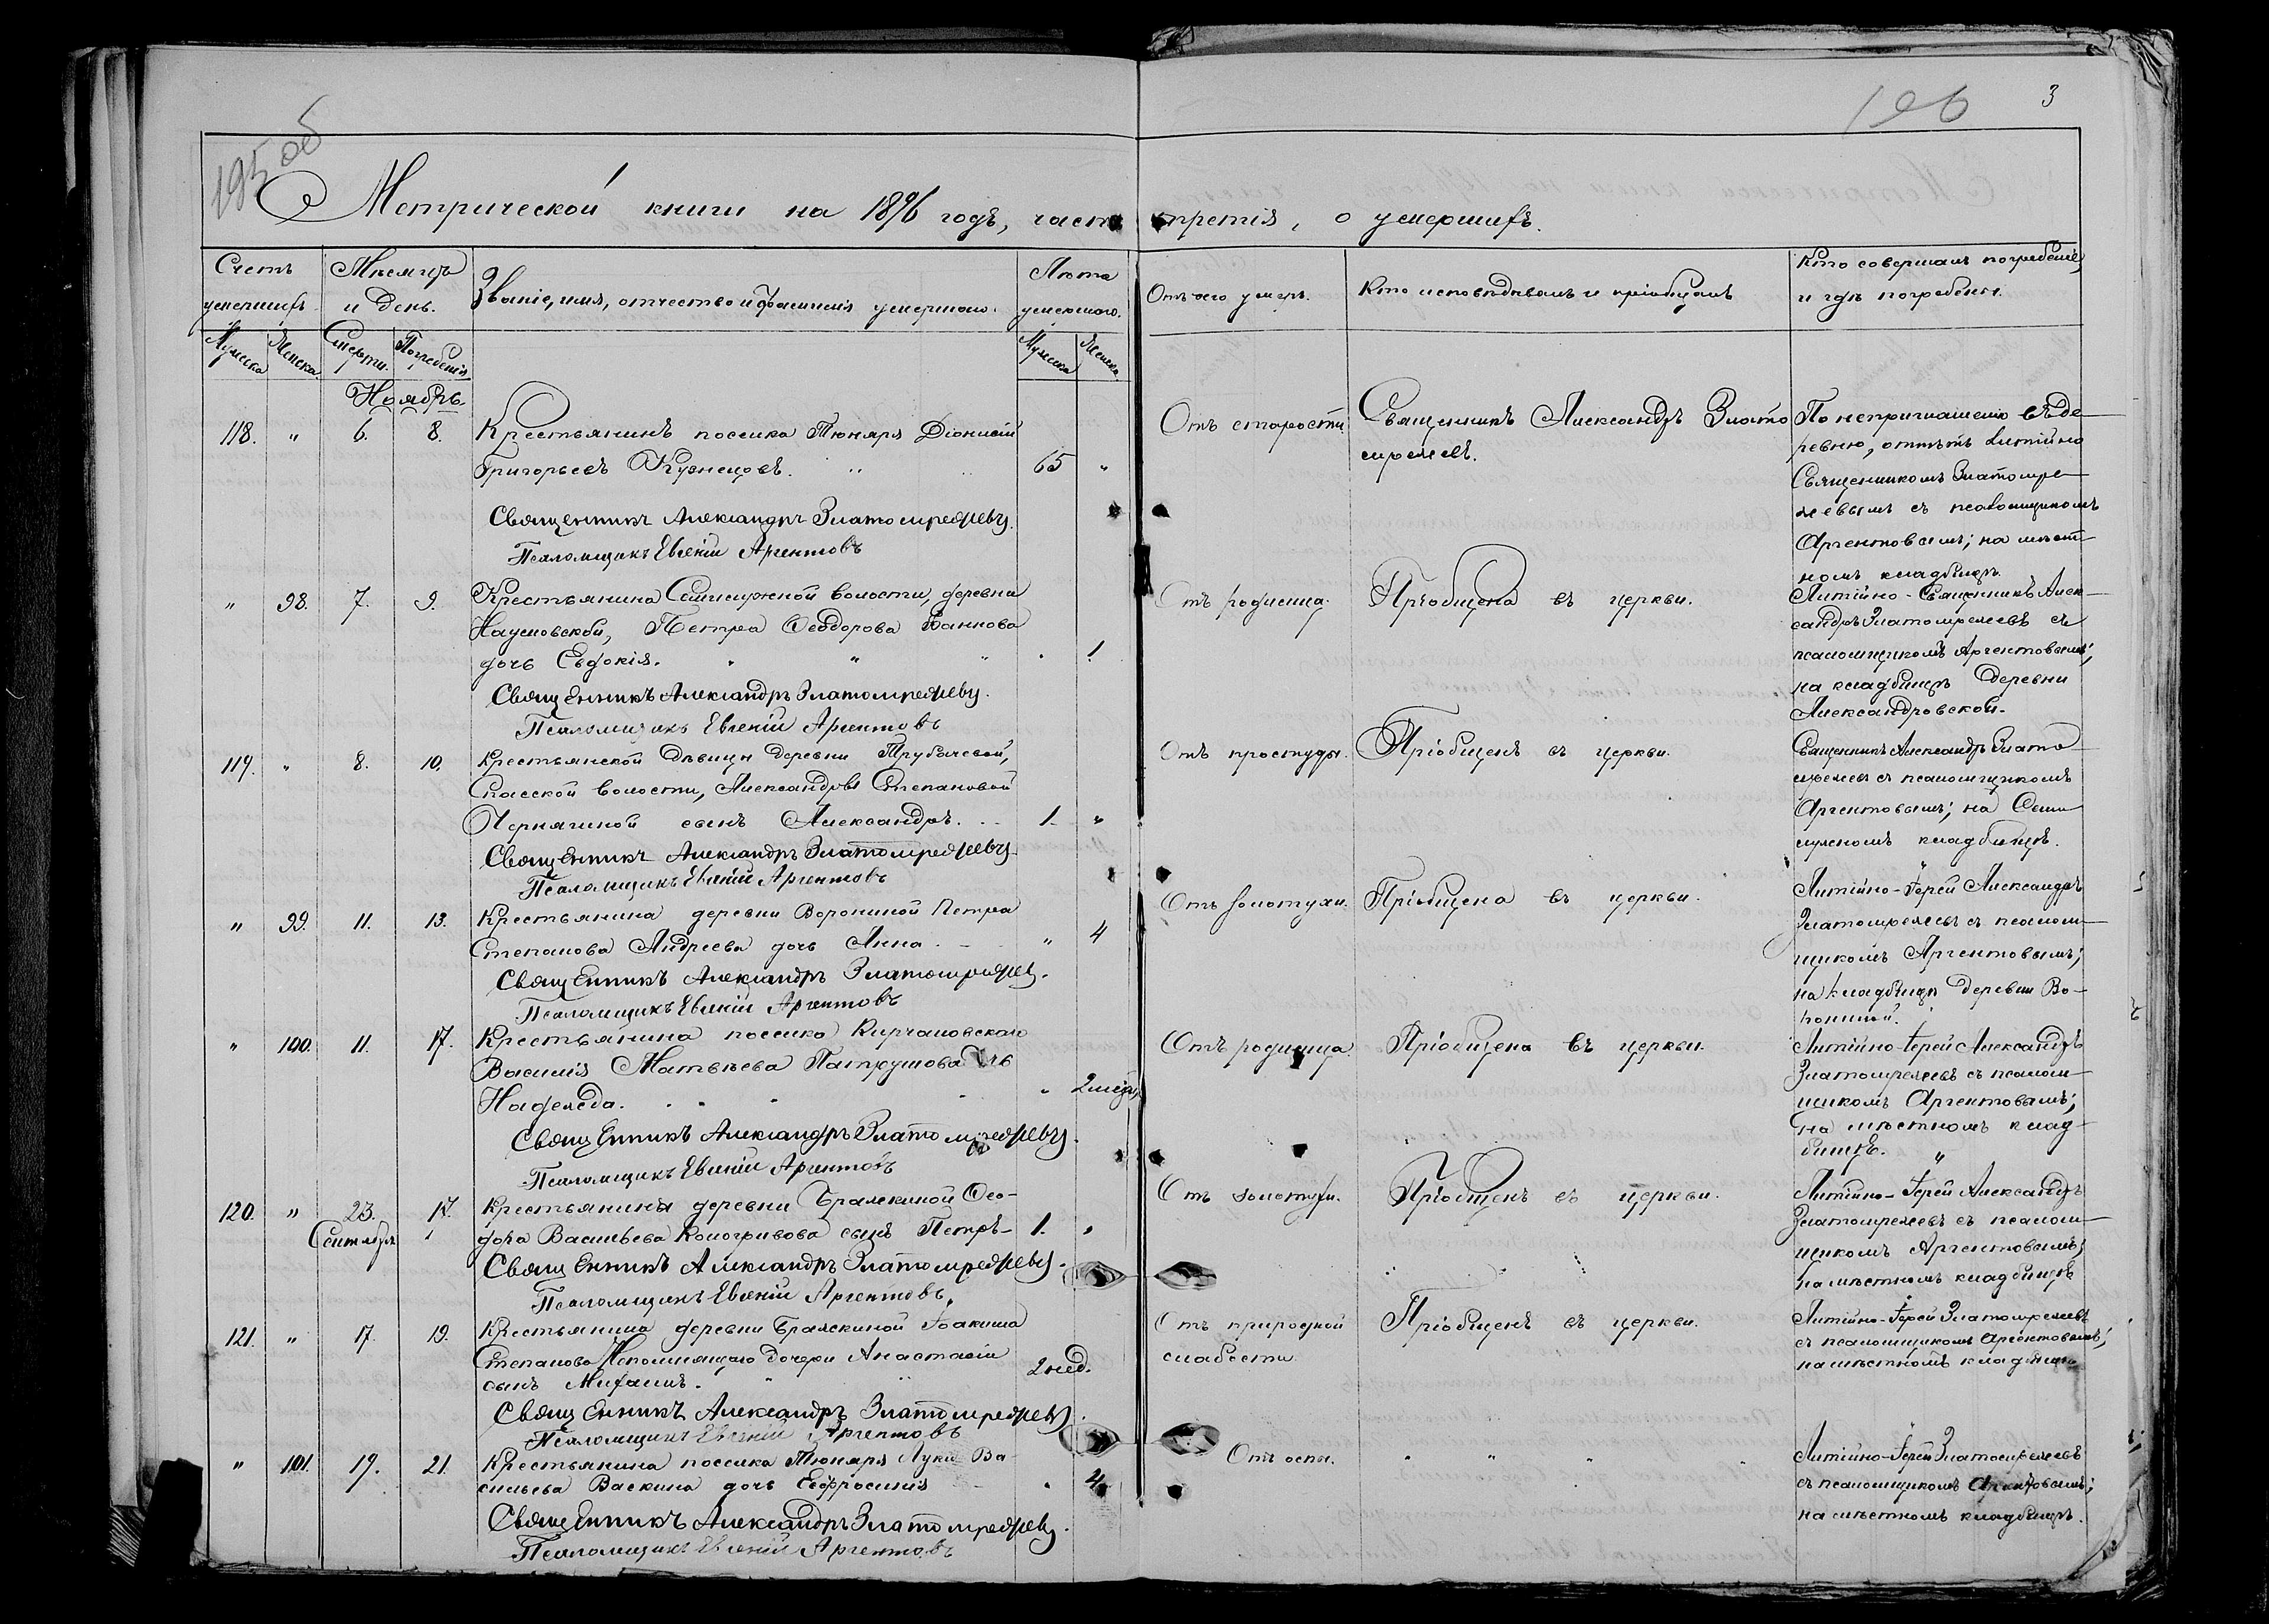 195 об
196
3
Метрической книги на 1896 годъ, часть третія, о умершихъ.
Счетъ умершихъ.
Мужеска
Женска.
Мѣсяцъ и день.
Смерти.
Погребенія
Званіе, имя, отчество и фамилія умершаго.
Лѣта умершаго.
Мужеска
Женска
Отъ чего умеръ.
Кто исповѣдывалъ и пріобщалъ
Кто совершалъ погребеніе, и гдѣ погребены.
Ноябрь
118. " 6. 8.
Крестьянинъ поселка Тюнярл Діонисій
Григорьевъ Кузнецовъ. 65 "
Отъ старости.
Священникъ Александръ Злато
мрежевъ.
По неприглашенію въ де-
ревню, отпѣтъ литійно
Священникомъ Златомре-
жевымъ съ псаломщикомъ
Аргентовымъ; на мѣст-
номъ кладбищѣ.
Священникъ Александръ Златомрежевъ.
Псаломщикъ Евгеній Аргентовъ
" 98. 7. 9.
Крестьянина Семилужной волости, деревни
Наумовской, Петра Ѳеодорова
дочь Евдокія. 1
Отъ родимца.
Пріобщена въ церкви.
Литійно - Священникъ Алек-
сандръ Златомрежевъ съ
псаломщикомъ Аргентовымъ;
на кладбищѣ деревни
Александровской.
Священникъ Александръ Златомрежевъ.
Псаломщикъ Евгеній Аргентовъ
119. " 8. 10.
Крестьянской дѣвицы деревни Трубачевой,
Спасской волости, Александры Степановой
сынъ Александръ. 1. "
Отъ простуды.
Пріобщенъ въ церкви.
Священникъ Александръ Злато-
мрежевъ съ псаломщикомъ
Аргентовымъ; на Семи-
лужномъ кладбищѣ.
Священникъ Александръ Златомрежевъ
Псаломщикъ Евгеній Аргентовъ
" 99. 11. 13.
Крестьянина деревни Ворониной Петра
Степанова Андреева дочь Анна. " 4
Отъ золотухи.
Пріобщена въ церкви.
Литійно - Іерей Александръ
Златомрежевъ съ псалом-
щикомъ Аргентовымъ;
на кладбищѣ деревни Во-
рониной.
Священникъ Александръ Златомрежевъ.
Псаломщикъ Евгеній Аргентовъ
" 100. 11. 17.
Крестьянина поселка
Василія Матвѣева Патрушова дочь
Надежда. "
Отъ родимца.
Пріобщена въ церкви.
Литійно - Іерей Александръ
Златомрежевъ съ псалом-
щикомъ Аргентовымъ;
на мѣстномъ клад-
бищѣ.
Священникъ Александръ Златомрежевъ.
Псаломщикъ Евгеній Аргентовъ
120. " 23. 17.
Сентября
Крестьянина деревни Бражкиной Ѳео-
дора Васильева Кологривова сынъ Петръ - 1. "
Отъ золотухи.
Пріобщенъ въ церкви.
Литійно - Іерей Александръ
Златомрежевъ съ псалом-
щикомъ Аргентовымъ;
на мѣстномъ кладбищѣ
Священникъ Александръ Златомрежевъ.
Псаломщикъ Евгеній Аргентовъ.
121. " 17. 19.
Крестьянина деревни Бражкиной Іоакима
Степанова Непомнящаго дочери Анастасіи
сынъ Михаилъ. 2 нед.
Отъ природной
слабости.
Пріобщенъ въ церкви.
Литійно - Іерей Златомрежевъ
съ псаломщикомъ Аргентовымъ;
на мѣстномъ кладбищѣ
Священникъ Александръ Златомрежевъ.
Псаломщикъ Евгеній Аргентовъ
" 101. 19. 21.
Крестьянина поселка Тюнярл Луки Ва-
сильева Васкина дочь Евфросинія " 4
Отъ оспы.
Литійно - Іерей Златомрежевъ
съ псаломщикомъ Аргентовымъ;
на мѣстномъ кладбищѣ.
Священникъ Александръ Златомрежевъ.
Псаломщикъ Евгеній Аргентовъ